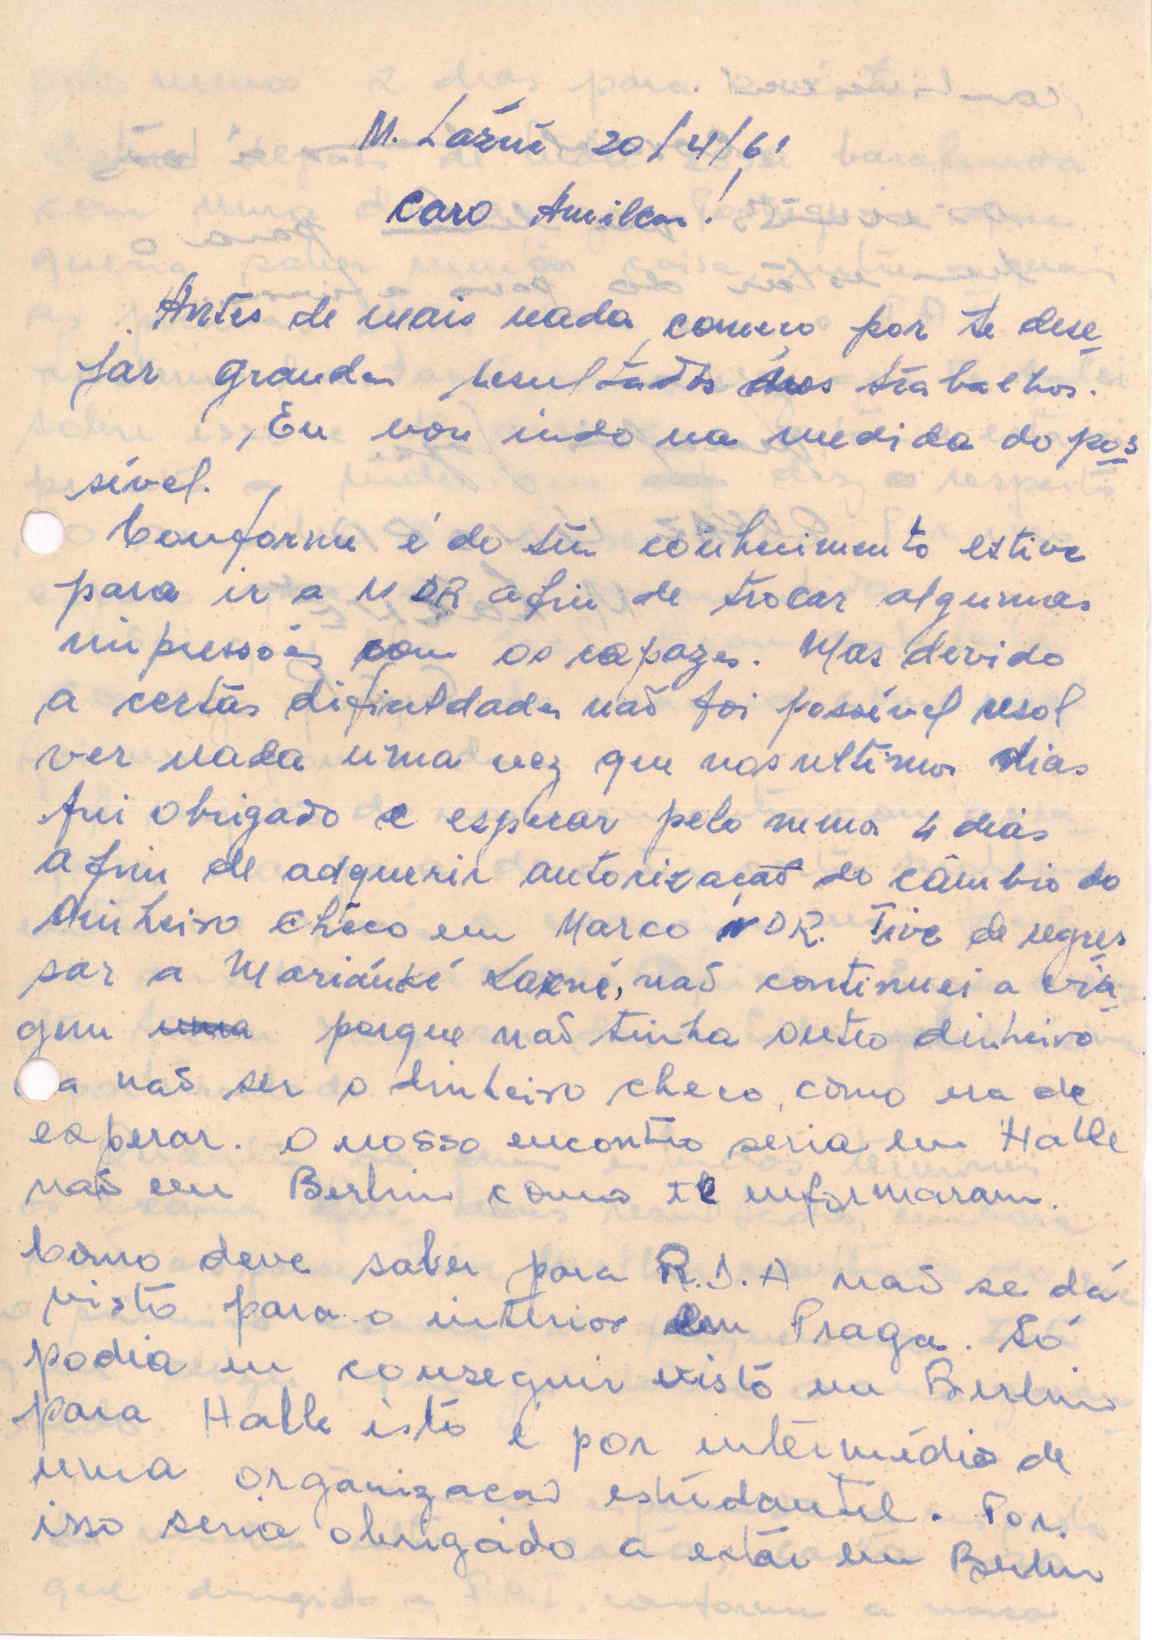 M. Lázně 20/4/61
Caro Amilcar!
Antes de mais nada, começo por te dese
jar grandes resultados nos trabalhos.
Eu vou indo na medida do pos
sível.
Conforme é do teu conhecimento estive
para ir a NDR afim de trocar algumas
impressões com os rapazes. Mas devido
a certas dificuldades não foi possível resol
ver nada uma vez que nos ultimos dias
fui obrigado e esperar pelo menos 4 dias
afim de adquerir autorização do câmbio do
dinheiro checo em Marco NDR. Tive de regres
sar a Mariánské Lazně, não continuei a via
gem uma porque não tinha outro dinheiro
a não ser o dinheiro checo, como era de
esperar. O nosso encontro seria em Halle
não em Berlim como te informaram.
Como deve saber para R.D.A não se dá
visto para o interior em Praga. Só
podia eu conseguir visto em Berlim
para Halle isto é por intermédio de
uma organização estudantil. Por
isso seria obrigado a estar em Berlim